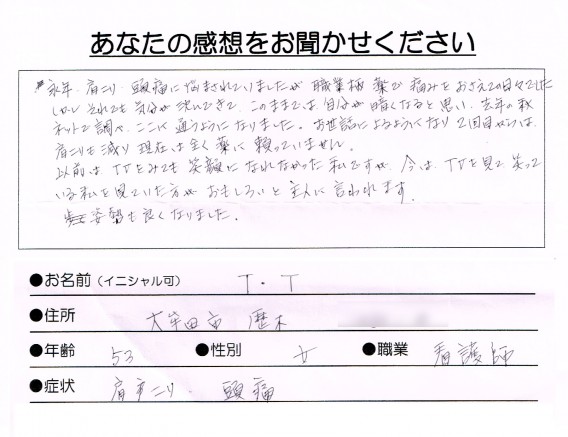 あなたの感想をお聞かせください
永年、肩こり、頭痛に悩まされていましたが 職業柄 薬で 痛みをおさえての日々でした
しかし それでも 気分が 沈んできて、このままでは 自分が 暗くなると思い、去年の秋
ネットで調べ、ここに 通うようになりました。お世話になるようになり 2回目からは、
肩こりも減り 現在は全く 薬に 頼っていません。
以前は TVをみても 笑顔に なれなかった 私ですが、今は、TVを見て 笑って
いる私を 見ていた方が おもしろいと 主人に 言われます。
姿勢も良くなりました。
●お名前（イニシャル可） T・T
●住所 大牟田市 歴木
●年齢 53 ●性別 女 ●職業 看護師
●症状 肩こり、頭痛